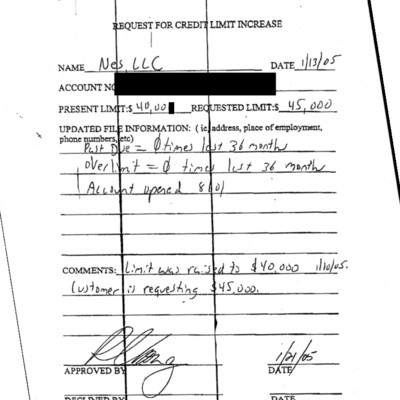 REQUEST FOR CREDIT LIMIT INCREASE
NAME Nes, LLC DATE 1/13/05
ACCOUNT NO
PRESENT LIMIT:$ 40,00 REQUESTED LIMIT:$ 45,000
UPDATED FILE INFORMATION: ( ie, address, place of employment,
phone numbers, etc)
Past Due = 0 times last 36 months
Overlimit = 0 times last 36 months
Account opened 8/01
COMMENTS: Limit was raised to $40,000 1/10/05.
Customer is requesting $45,000.
1/21/05
APPROVED BY DATE
DECLINED BY DATE